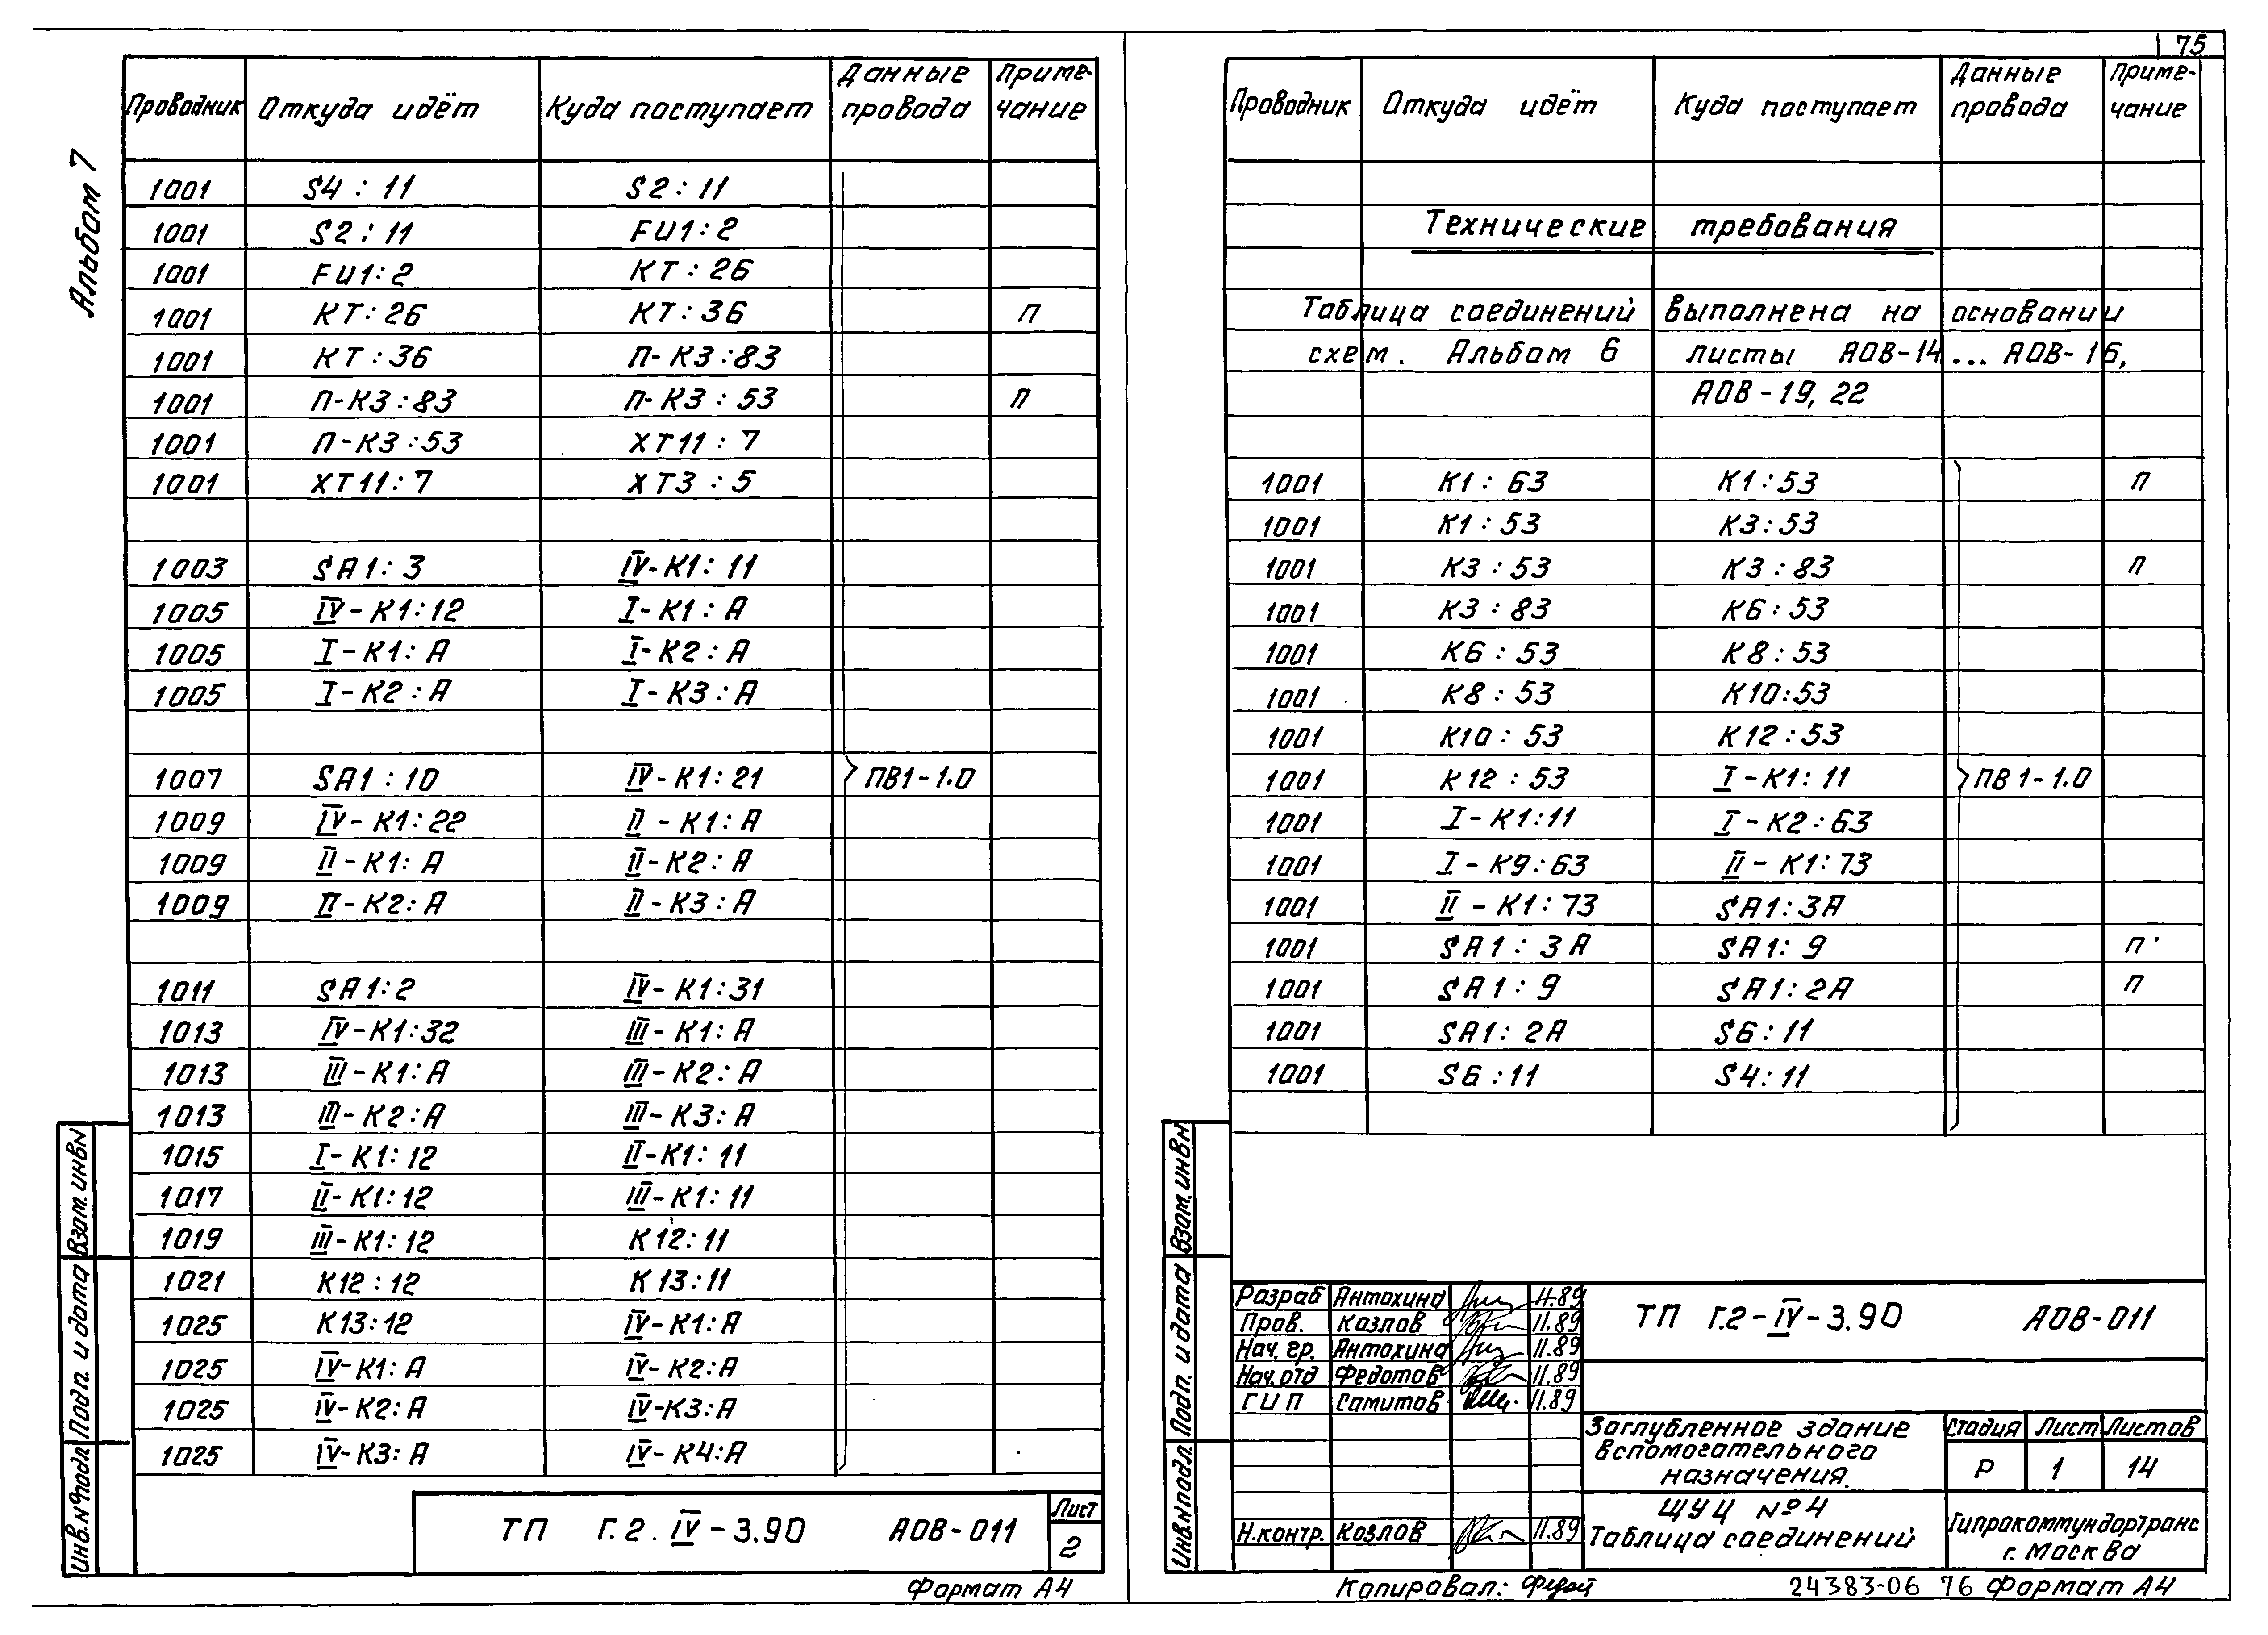 75
Альбом 7
Проводник Откуда идёт Куда поступает Данные провода Приме-чание
1001 S4 : 11 S2 : 11
1001 S2 : 11 FU1 : 2
1001 FU1 : 2 КТ : 26
1001 КТ : 26 КТ : 36 п
1001 КТ : 36 П-К3 : 83
1001 П-К3 : 83 П-К3 : 53 п
1001 П-К3 : 53 ХТ11 : 7
1001 ХТ11 : 7 ХТ3 : 5
1003 SA1 : 3 IV-К1 : 11
1005 IV-К1 : 12 I-К1 : А
1005 I-К1 : А I-К2 : А
1005 I-К2 : А I-К3 : А
1007 SA1 : 10 IV-К1 : 21 ПВ1-1.0
1009 IV-К1 : 22 II-К1 : А
1009 II-К1 : А II-К2 : А
1009 II-К2 : А II-К3 : А
1011 SA1 : 2 IV-К1 : 31
1013 IV-К1 : 32 III-К1 : А
1013 III-К1 : А III-К2 : А
1013 III-К2 : А III-К3 : А
1015 I-К1 : 12 II-К1 : 11
1017 II-К1 : 12 III-К1 : 11
1019 III-К1 : 12 К12 : 11
1021 К12 : 12 К13 : 11
1025 К13 : 12 IV-К1 : А
1025 IV-К1 : А IV-К2 : А
1025 IV-К2 : А IV-К3 : А
1025 IV-К3 : А IV-К4 : А
Взам. инв N
Подп. и дата
Инв. № подл.
ТП Г.2. IV-3.90 АОВ-011
Лист
2
Формат А4
Проводник Откуда идёт Куда поступает Данные провода Приме-чание
Технические требования
Таблица соединений выполнена на основании
схем. Альбом 6 листы АОВ-14... АОВ-16,
АОВ-19, 22
1001 К1 : 63 К1 : 53 п
1001 К1 : 53 К3 : 53
1001 К3 : 53 К3 : 83 п
1001 К3 : 83 К6 : 53
1001 К6 : 53 К8 : 53
1001 К8 : 53 К10 : 53
1001 К10 : 53 К12 : 53
1001 К12 : 53 I-К1 : 11 ПВ1-1.0
1001 I-К1 : 11 I-К2 : 63
1001 I-К9 : 63 II-К1 : 73
1001 II-К1 : 73 SA1 : 3А
1001 SA1 : 3А SA1 : 9 п
1001 SA1 : 9 SA1 : 2А п
1001 SA1 : 2А S6 : 11
1001 S6 : 11 S4 : 11
Взам. инв N
Подп. и дата
Инв. N подл.
Разраб Антохина 11.89
Пров. Козлов 11.89
Нач. гр. Антохина 11.89
Нач. отд Федотов 11.89
ГИП Самитов 11.89
Н. контр. Козлов 11.89
ТП Г.2-IV-3.90 АОВ-011
Заглубленное здание
вспомогательного
назначения.
Стадия Лист Листов
Р 1 14
ЩУЦ №4
Таблица соединений
Гипрокоммундортранс
г. Москва
Копировал:
24383-06 76 Формат А4